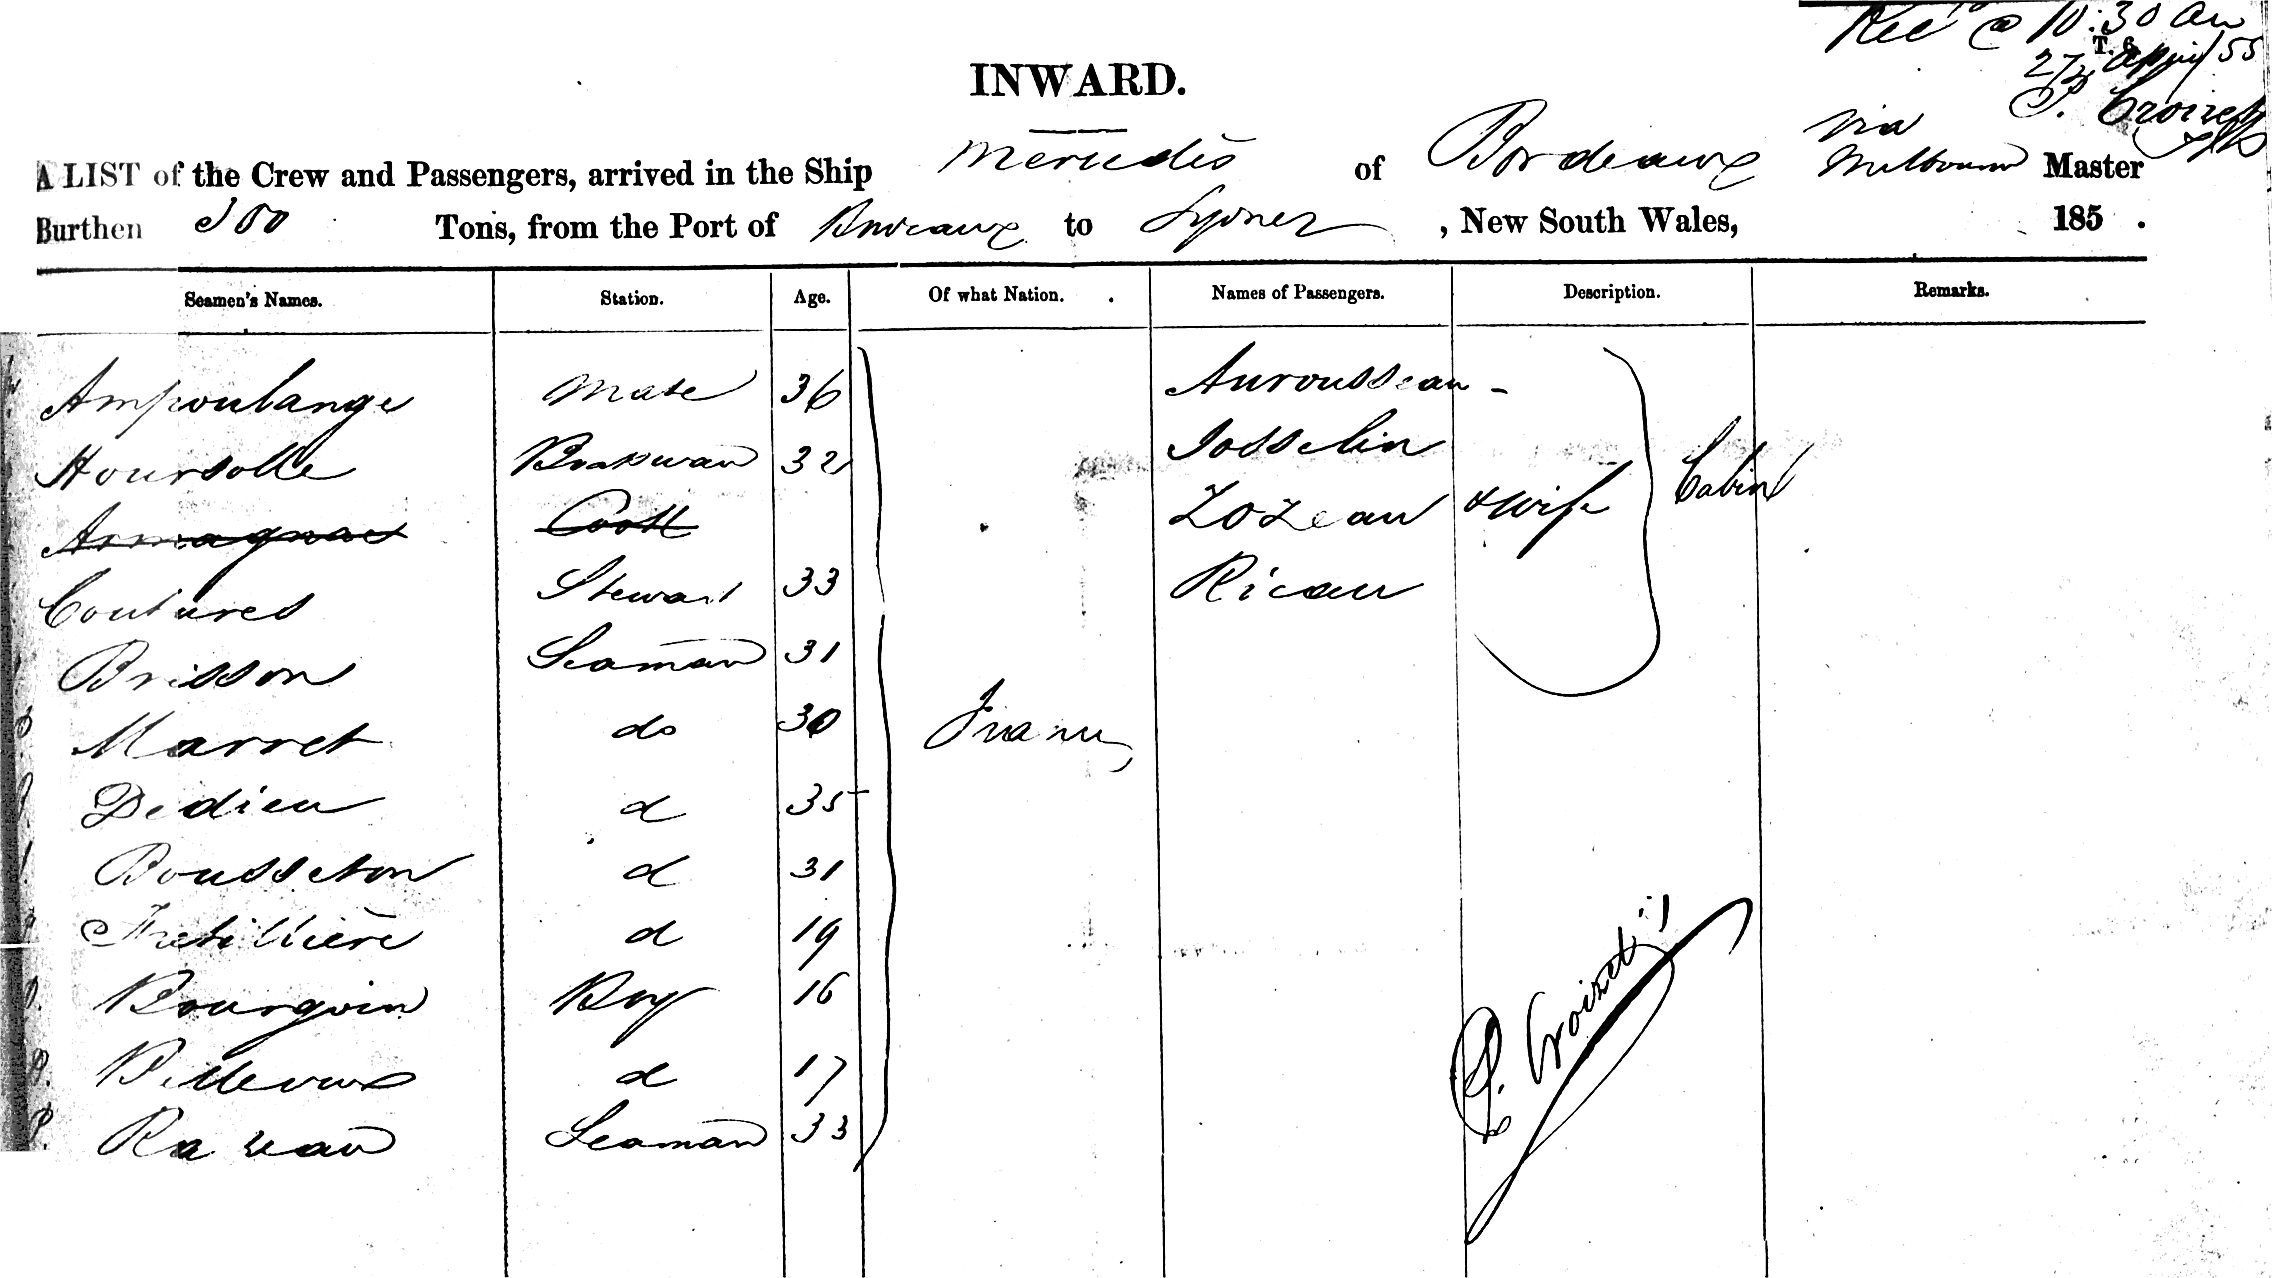 Recd @ 10:30 am
T. S.
27 April/55
P. Croizet
INWARD.
A LIST of the Crew and Passengers, arrived in the Ship Mercedes of Bordeaux via Melbourne Master
Burthen 300 Tons, from the Port of Bordeaux to Sydney, New South Wales, 185 .
Seamen's Names. Station. Age. Of what Nation. Names of Passengers. Description. Remarks.
Ampoulange Mate 36 Aurousseau -
Hoursolle 32 Josselin
Armagnac Cook Zozeau & wife Cabin
Coutures Steward 33 Ricau
Brisson Seaman 31
Marret do 30 France
Dedieu d 35
Bousseton d 31
Fretillière d 19
Bourgoin Boy 16
Bellevue d 17
Seaman 33
P. Croizet